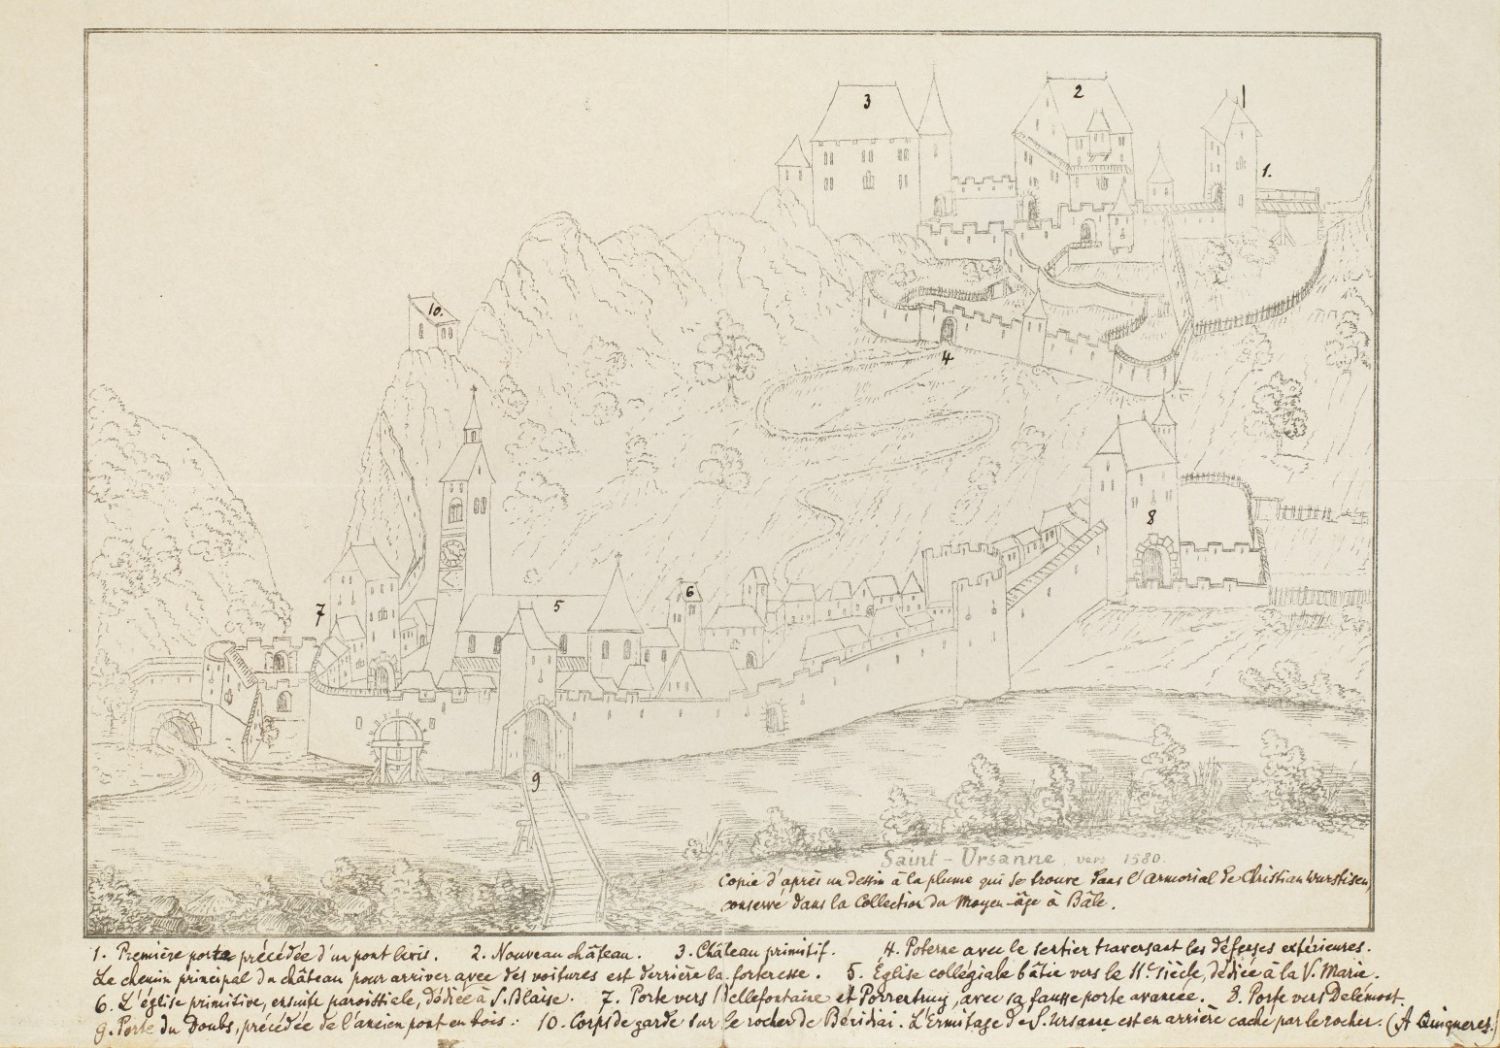 3
2
1.
10.
4
8
7
5
6
9
Saint-Ursanne, vers 1580.
Copie d'après un dessin à la plume qui se trouve dans l'Armorial de Christian Wurstisen,
conservé dans la Collection du Moyen-âge à Bâle.
1. Première porte précédée d'un pont levis. 2. Nouveau château. 3. Château primitif. 4. Poterne avec le sentier traversant les défenses extérieures.
Le chemin principal du château pour arriver avec des voitures est derrière la forteresse. 5. Église collégiale bâtie vers le 11e siècle, dédiée à la V. Marie.
6. L'église primitive, ensuite paroissiale, dédiée à S. Blaise. 7. Porte vers Bellefontaine et Porrentruy, avec sa fausse porte avancée. 8. Porte vers Delémont.
9. Porte du Doubs, précédée de l'ancien pont en bois. 10. Corps de garde sur le rocher de Béridiai. L'Ermitage de S. Ursanne est en arrière caché par le rocher. (A Quiquerez.)